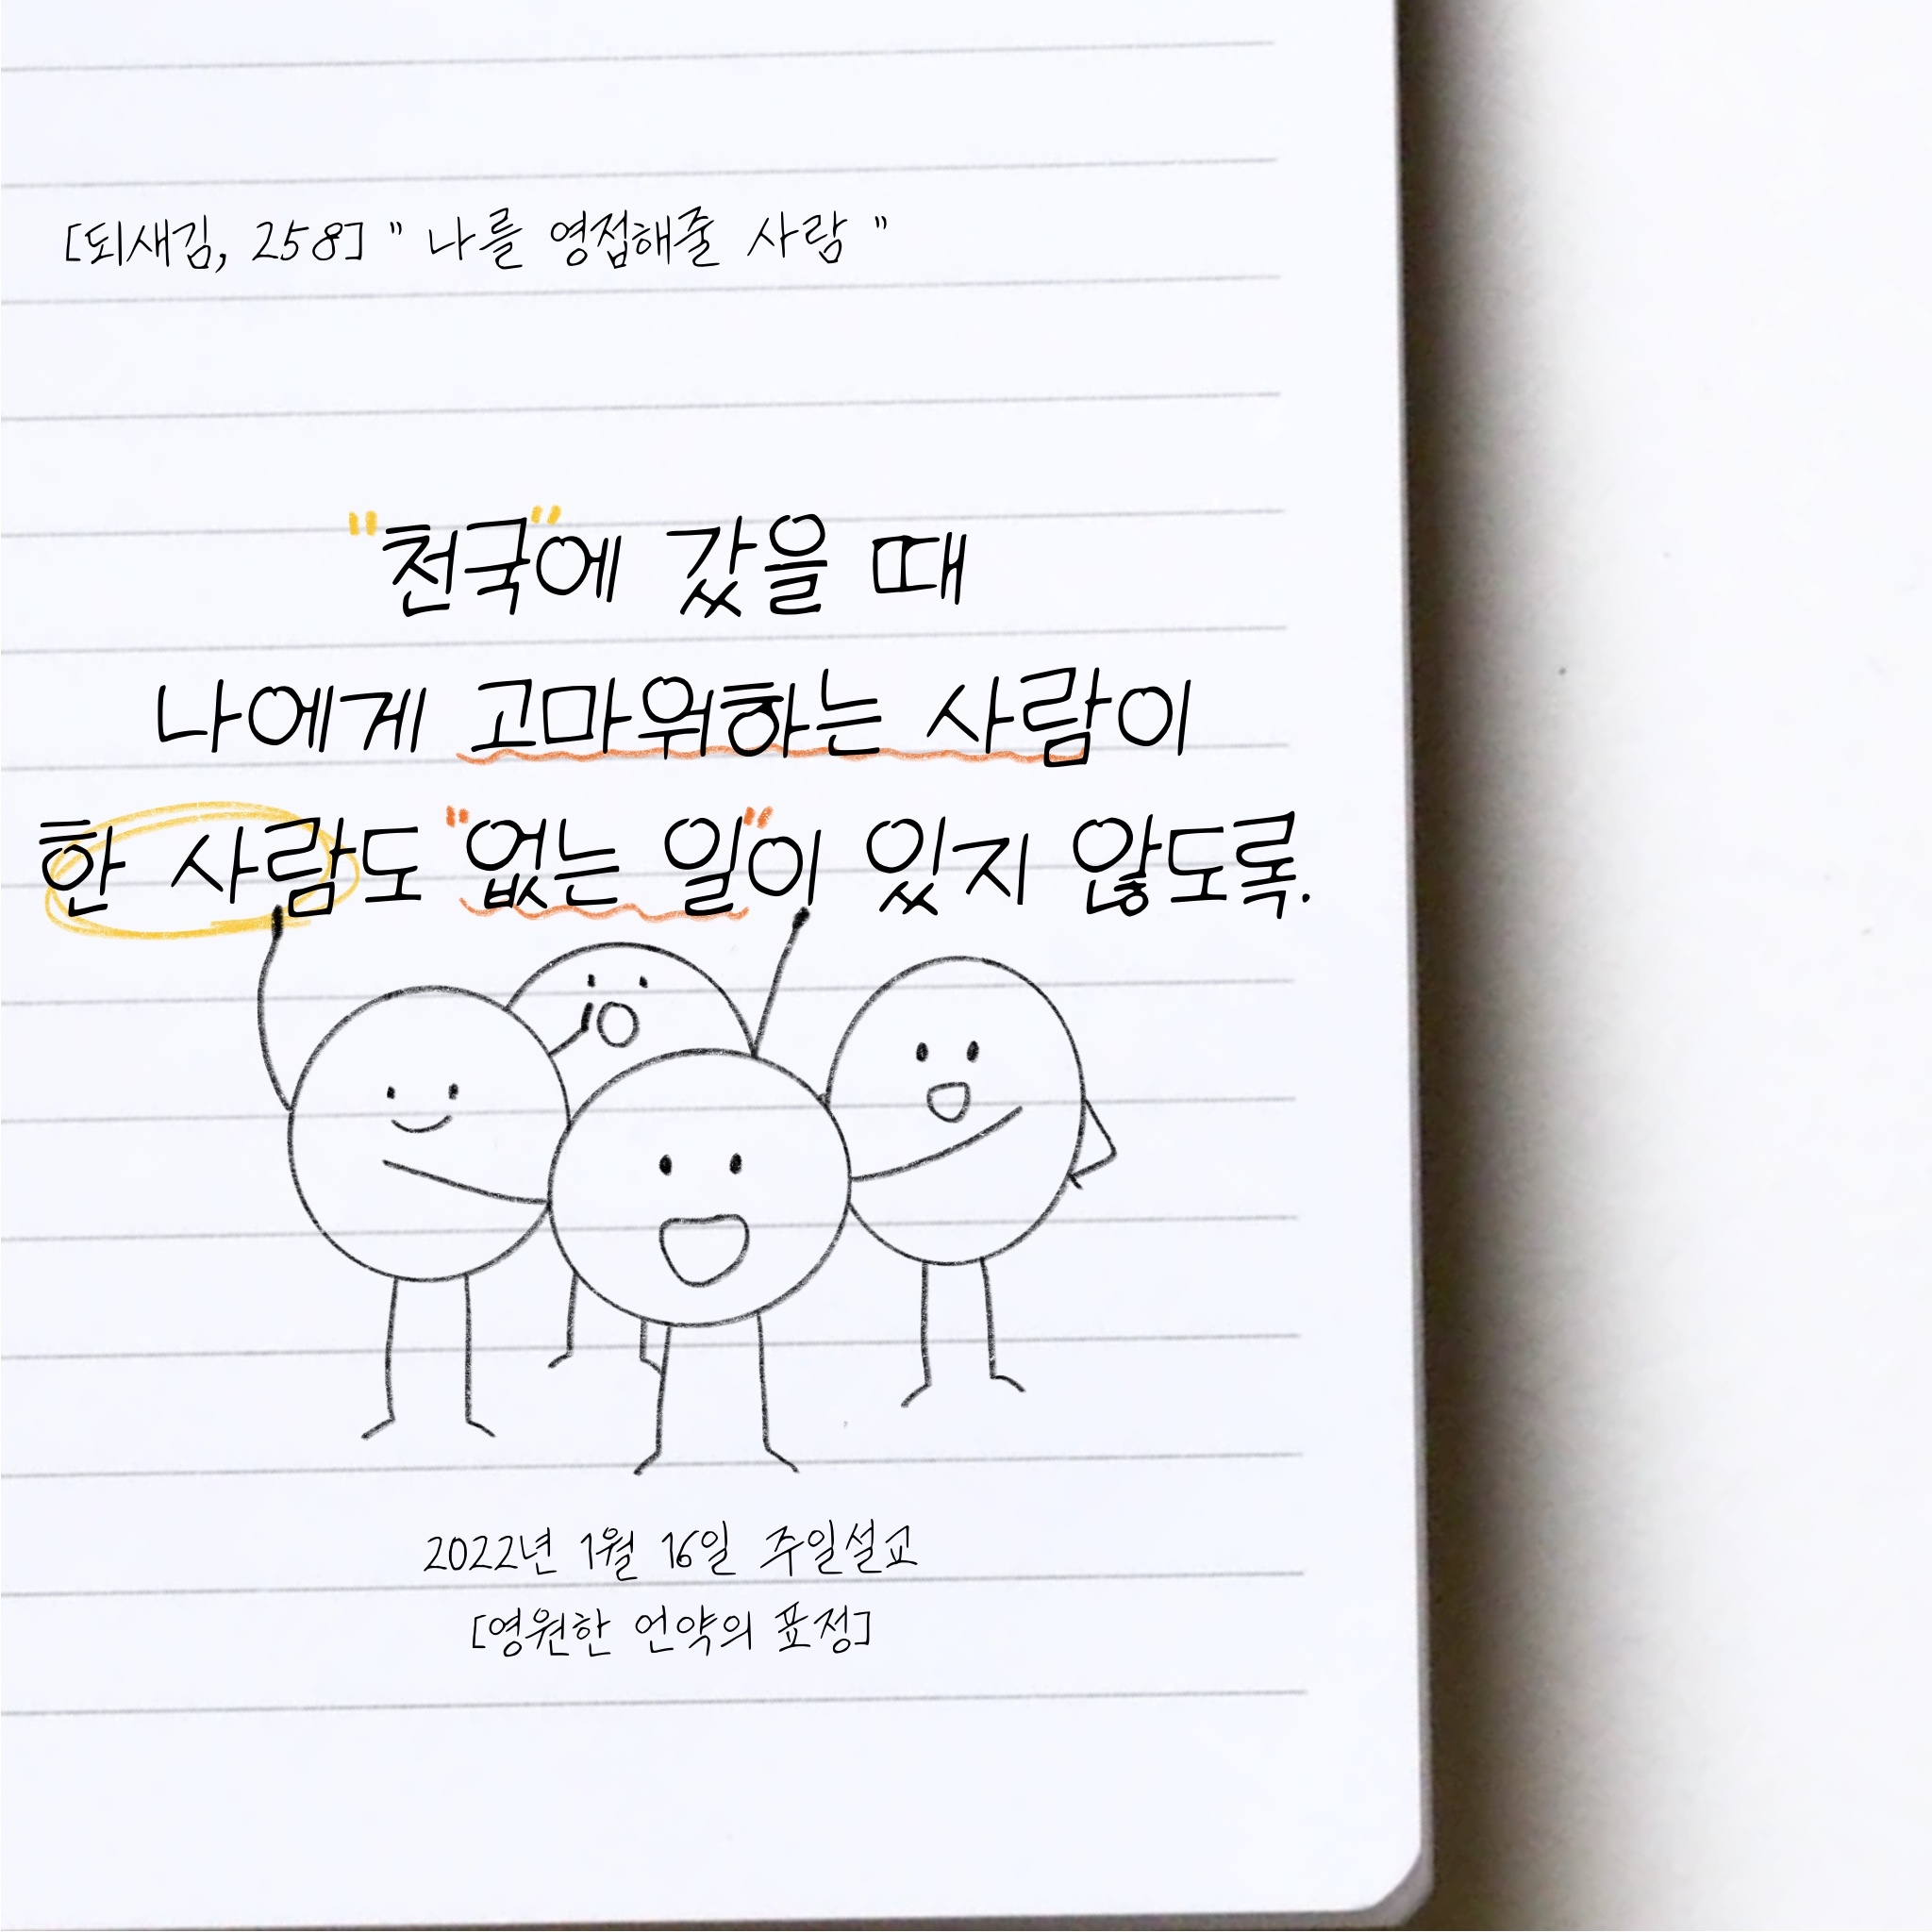 [되새김, 258] " 나를 영접해줄 사람 "
"천국"에 갔을 때
나에게 고마워하는 사람이
한 사람도 "없는 일"이 있지 않도록.
2022년 1월 16일 주일설교
[영원한 언약의 표정]